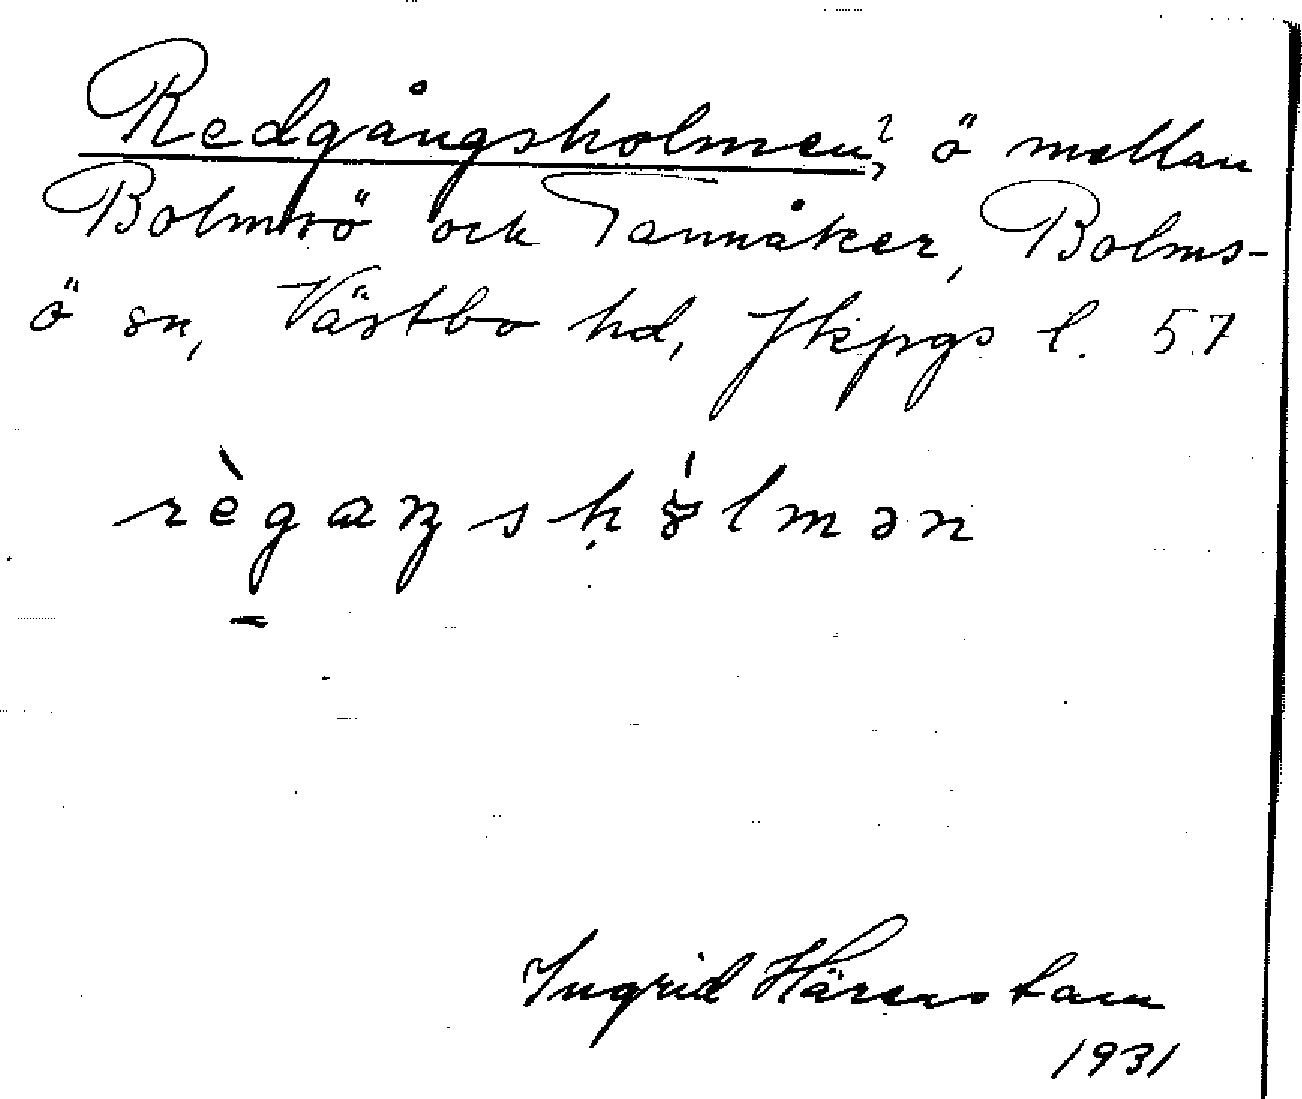 Redgångsholmen?, ö mellan
Bolmsö och Tannåker, Bolms-
ö sn, Västbo hd, Jkpgs l. 57
règaŋshólmən
Ingrid Härenstam
1931